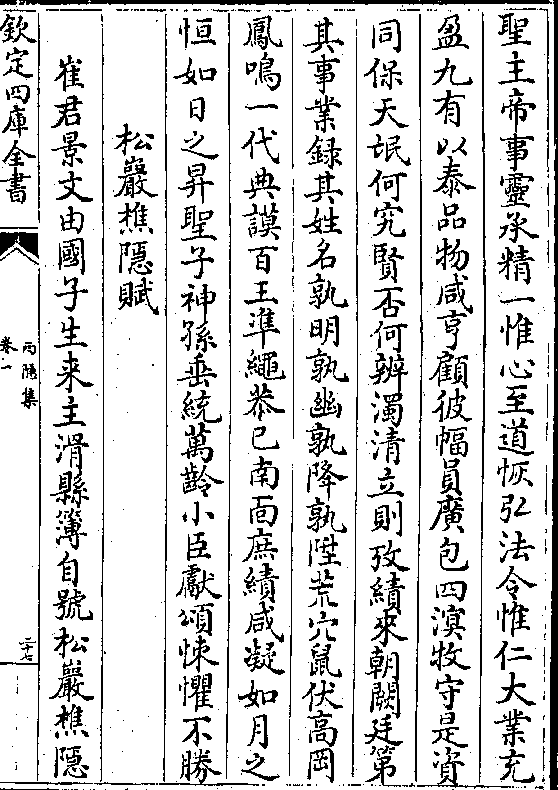 聖主帝事靈承精一惟心至道恢弘法令惟仁大業充
盈九有以泰品物咸亨顧彼幅員廣包四溟牧守是資
同保天氓何究賢否何辨濁清立則攷績來朝闕廷第
其事業録其姓名孰明孰幽孰降孰陞荒穴鼠伏高岡
鳳鳴一代典謨百王準繩恭已南面庶績咸凝如月之
恒如日之昇聖子神孫垂統萬齡小臣獻頌悚懼不勝
松巖樵隠賦
崔君景文由國子生来主滑縣簿自號松巖樵隠
欽定四庫全書
兩隄集
卷一
三十七